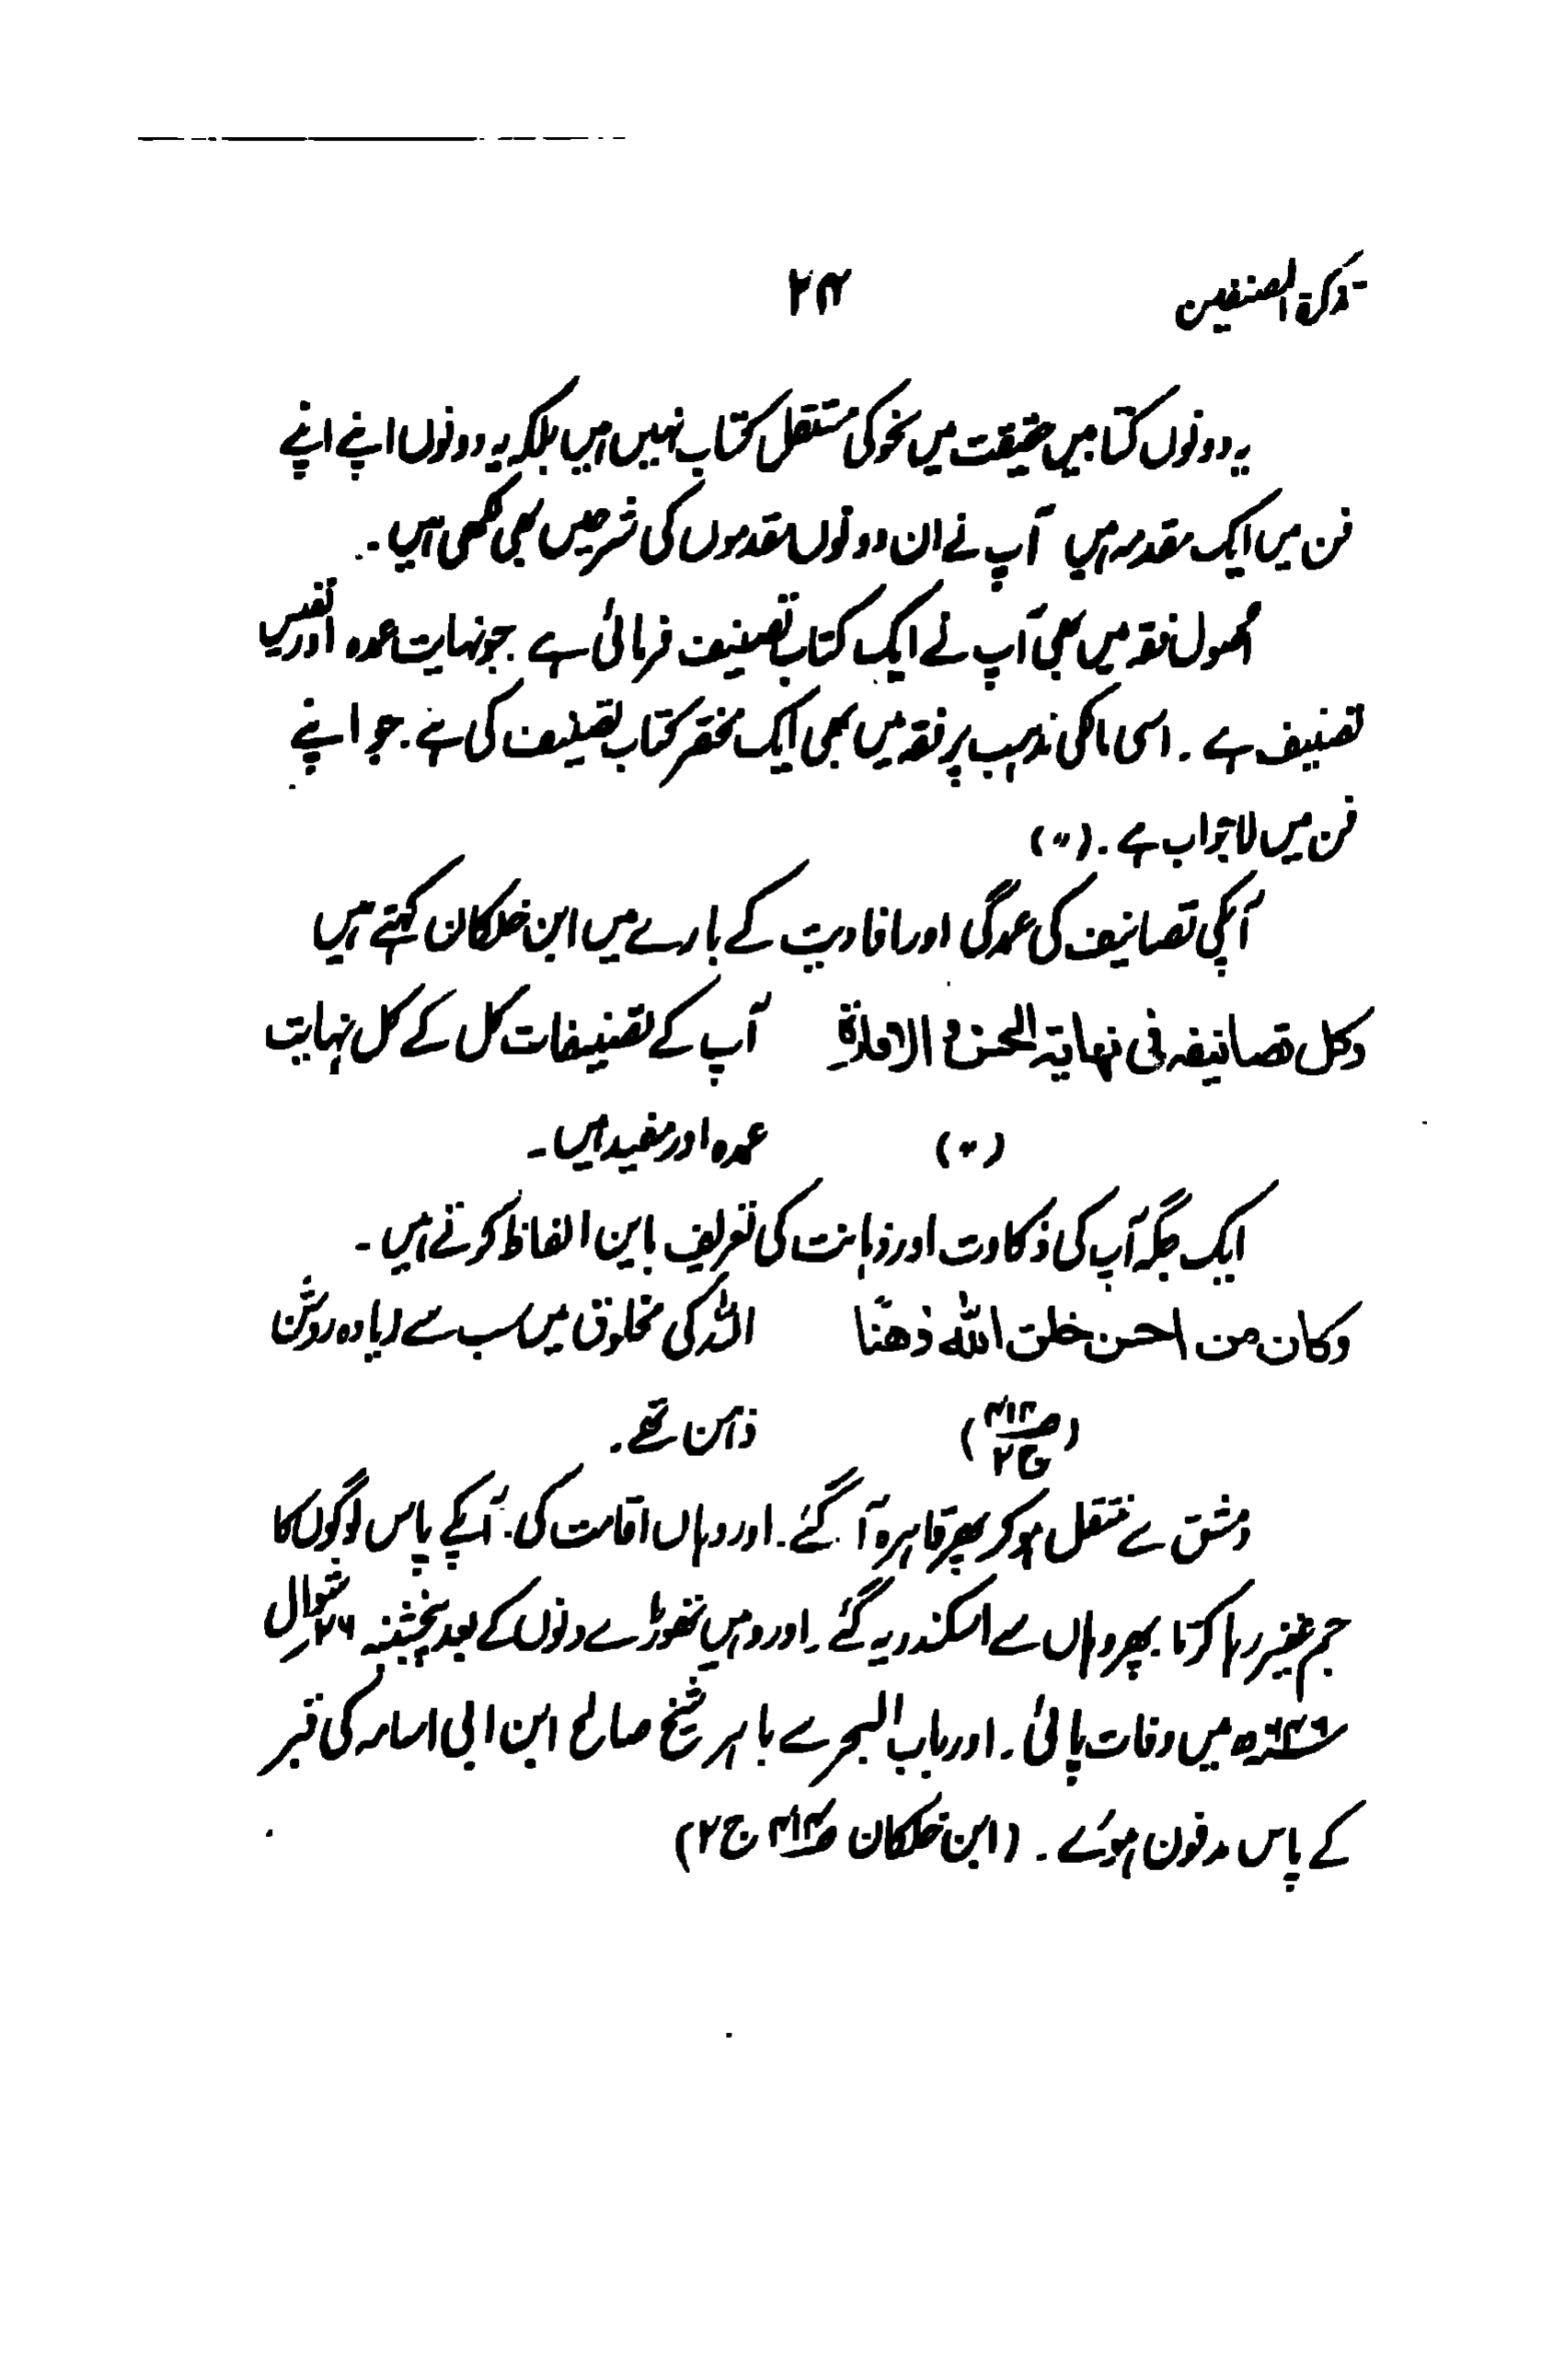 تذکرۃ المصنفین ۲۴
یہ دونوں کتابیں حقیقت میں نحو کی مستقل کتاب نہیں ہیں بلکہ یہ دونوں اپنے اپنے
فن میں ایک مقدمہ ہیں آپ نے ان دونوں مقدموں کی شرحیں بھی لکھی ہیں۔
اصول فقہ میں بھی آپ نے ایک کتاب تصنیف فرمائی ہے جو نہایت عمدہ اور نفیس
تصنیف ہے۔ اسی مالکی مذہب پر فقہ میں بھی ایک مختصر کتاب تصنیف کی ہے۔ جو اپنے
فن میں لاجواب ہے۔ (〃)
آپکی تصانیف کی عمدگی اور افادیت کے بارے میں ابن خلکان کہتے ہیں
وکل تصانیفہ فی نہایۃ الحسن و الافادۃِ آپ کے تصنیفات کل کے کل نہایت
(〃) عمدہ اور مفید ہیں۔
ایک جگہ آپ کی ذکاوت اور ذہانت کی تعریف باین الفاظ کرتے ہیں۔
وکان من احسن خلق اللہ ذھنًا اللہ کی مخلوق میں سب سے زیادہ روشن
(ص۳۱۴ ج۲) ذہن تھے۔
دمشق سے منتقل ہو کر پھر قاہرہ آ گئے۔ اور وہاں اقامت کی۔ آپکے پاس لوگوں کا
جم غفیر رہا کرتا پھر وہاں سے اسکندریہ گئے۔ اور وہیں تھوڑے دنوں کے بعد پنجشنبہ ۲۶ شوال
۶۴۶ھ میں وفات پائی۔ اور باب البحر سے باہر شیخ صالح ابن ابی اسامہ کی قبر
کے پاس مدفون ہوئے۔ (ابن خلکان ص۳۱۴ ج۲)